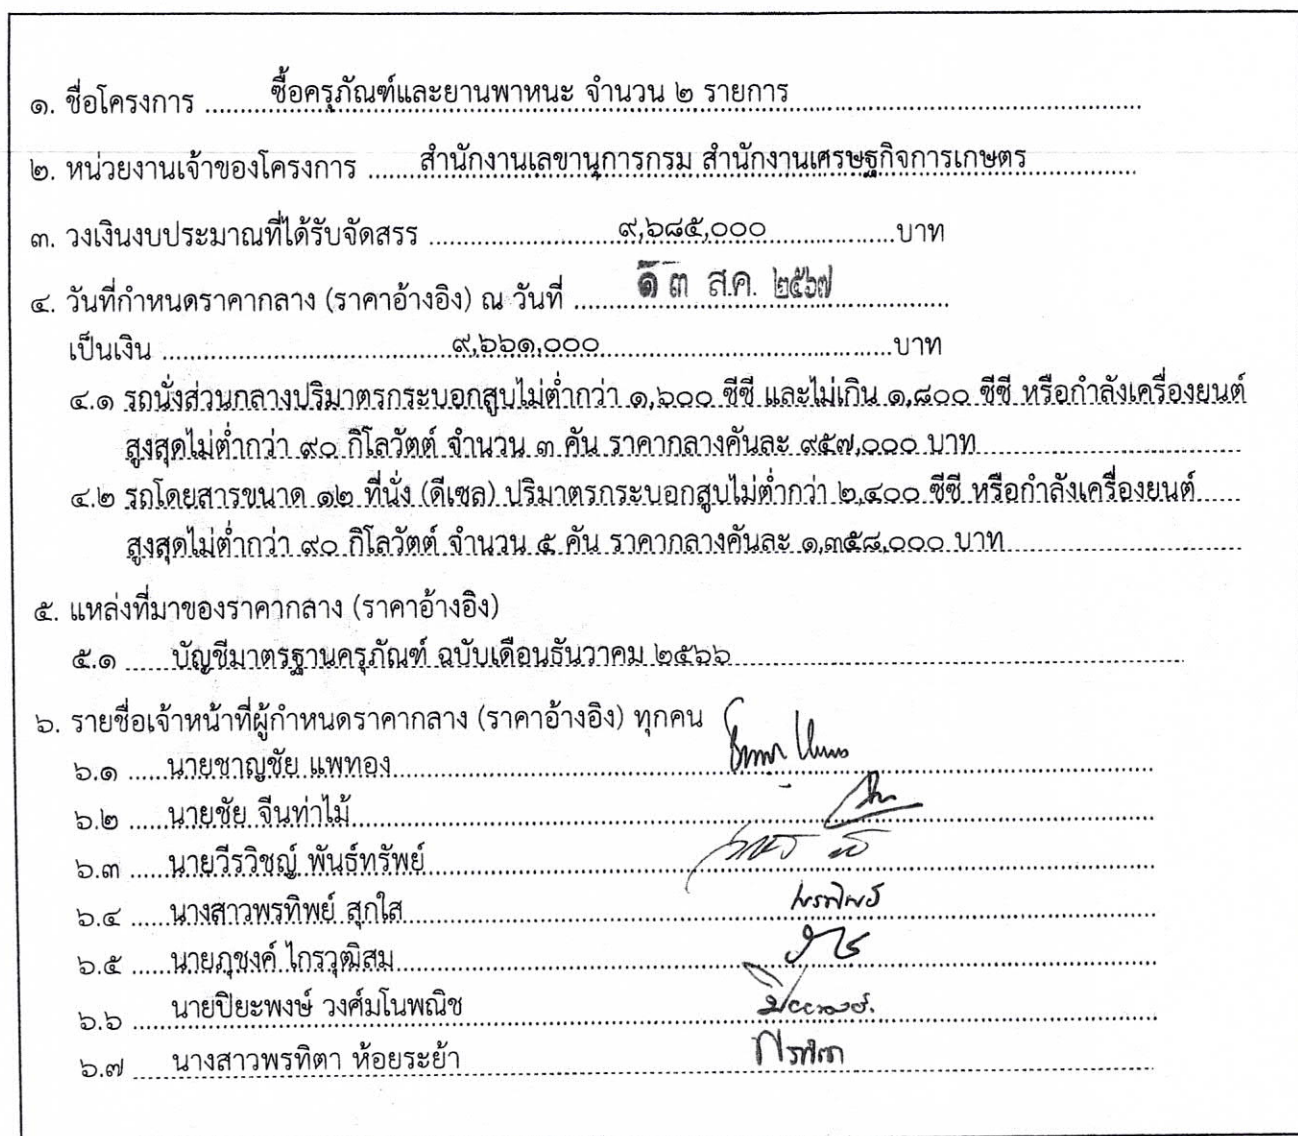 ๑. ชื่อโครงการ ........ซื้อครุภัณฑ์และยานพาหนะ จำนวน ๒ รายการ........
๒. หน่วยงานเจ้าของโครงการ ........สำนักงานเลขานุการกรม สำนักงานเศรษฐกิจการเกษตร........
๓. วงเงินงบประมาณที่ได้รับจัดสรร ........๙,๖๘๕,๐๐๐........บาท
๔. วันที่กำหนดราคากลาง (ราคาอ้างอิง) ณ วันที่ ........๑๓ ส.ค. ๒๕๖๗........
เป็นเงิน ........๙,๖๖๑,๐๐๐........บาท
๔.๑ รถนั่งส่วนกลางปริมาตรกระบอกสูบไม่ต่ำกว่า ๑,๖๐๐ ซีซี และไม่เกิน ๑,๘๐๐ ซีซี หรือกำลังเครื่องยนต์
สูงสุดไม่ต่ำกว่า ๙๐ กิโลวัตต์ จำนวน ๓ คัน ราคากลางคันละ ๙๕๗,๐๐๐ บาท........
๔.๒ รถโดยสารขนาด ๑๒ ที่นั่ง (ดีเซล) ปริมาตรกระบอกสูบไม่ต่ำกว่า ๒,๔๐๐ ซีซี หรือกำลังเครื่องยนต์........
สูงสุดไม่ต่ำกว่า ๙๐ กิโลวัตต์ จำนวน ๕ คัน ราคากลางคันละ ๑,๓๕๘,๐๐๐ บาท........
๕. แหล่งที่มาของราคากลาง (ราคาอ้างอิง)
๕.๑ ........บัญชีมาตรฐานครุภัณฑ์ ฉบับเดือนธันวาคม ๒๕๖๖........
๖. รายชื่อเจ้าหน้าที่ผู้กำหนดราคากลาง (ราคาอ้างอิง) ทุกคน
๖.๑ ......นายชาญชัย แพทอง........
๖.๒ ......นายชัย จีนท่าไม้........
๖.๓ ......นายวีรวิชญ์ พันธ์ทรัพย์........
๖.๔ ......นางสาวพรทิพย์ สุกใส........ พรทิพย์
๖.๕ ......นายภุชงค์ ไกรวุฒิสม........
๖.๖ ......นายปิยะพงษ์ วงศ์มโนพณิช........
๖.๗ ......นางสาวพรทิตา ห้อยระย้า........